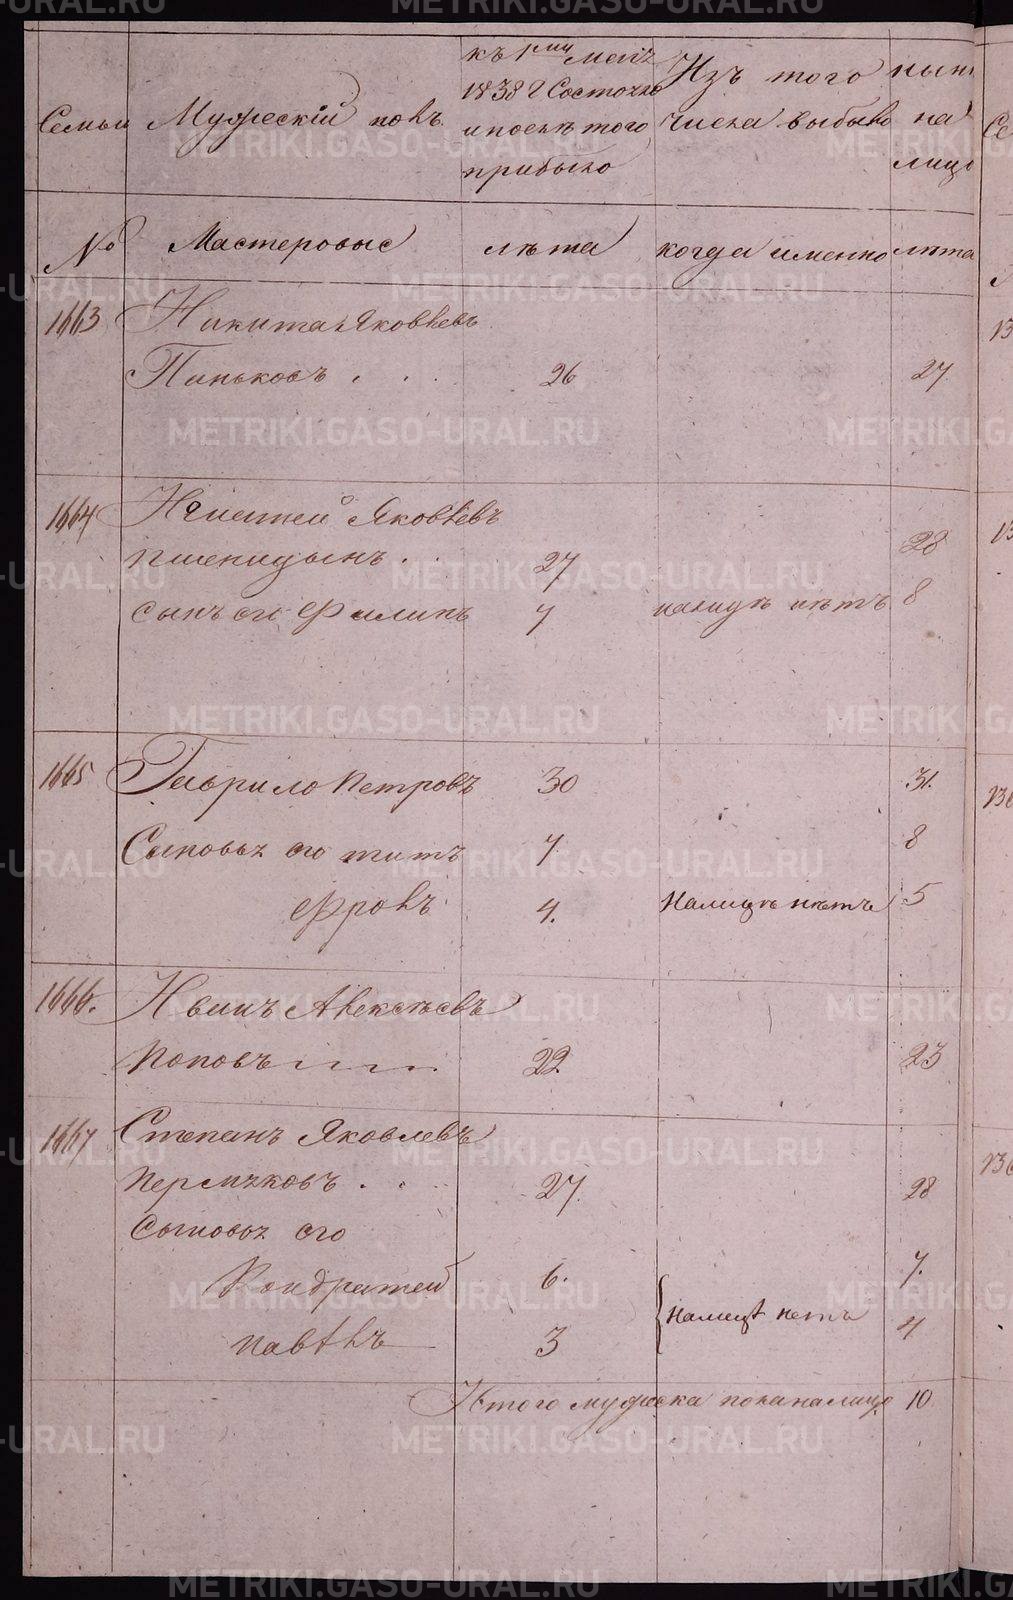 Семьи
Мужескiй полъ.
1838 г Состояло
и послѣ того
прибыло
Изъ того
числа выбыло
ныне
на
лицо
№
Мастеровые
лѣта
когда именно
лѣта
1663 Никита Яковлевъ
Паньковъ . . . 26 27
1664 Игнатей Яковлевъ
Пшеницынъ . . 27 28
сынъ его Филипъ 7 налицѣ нѣтъ 8
1665 Гаврило Петровъ 30 31.
Сыновья его Титъ 7 8
Фролъ 4. Налицѣ нѣтъ 5
1666. Иванъ Алексѣевъ
Поповъ 22. 23
1667 Степанъ Яковлевъ
Пермяковъ . . . 27 28
Сыновья его
Кондратей 6. 7.
Павелъ 3 налицѣ нетъ 4
Итого мужеска пола налицо 10
METRIKI.GASO-URAL.RU